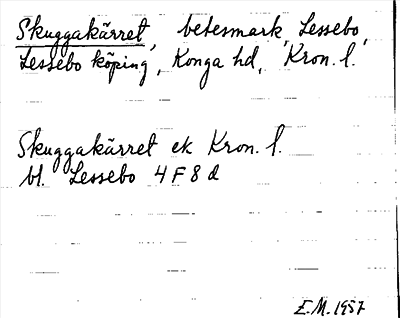 Skuggakärret, betesmark, Lessebo,
Lessebo köping, Konga hd, Kron. l.
Skuggakärret ek Kron. l.
bl. Lessebo 4 F 8 d
E.M. 1957